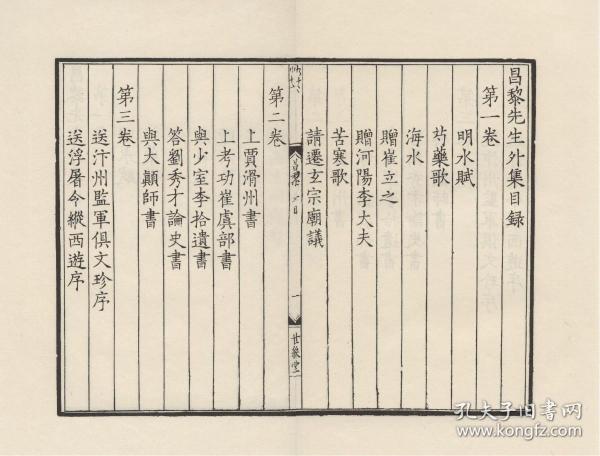 昌黎先生外集目録
第一卷
明水賦
芍藥歌
海水
贈崔立之
贈河陽李大夫
苦寒歌
請遷玄宗廟議
昌黎 目
一
世綵堂
第二卷
上賈滑州書
上考功崔虞部書
與少室李拾遺書
答劉秀才論史書
與大顛師書
第三卷
送汴州監軍俱文珍序
送浮屠令縱西遊序
孔夫子旧书网
www.kongfz.com